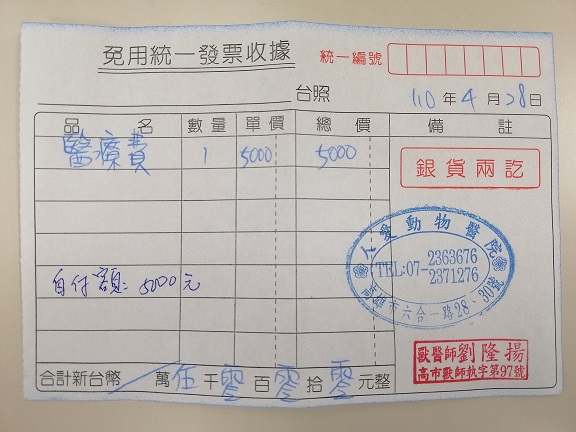 免用統一發票收據
統一編號
台照
110年4月28日
品名 數量 單價 總價 備註
醫療費 1 5000 5000
銀貨兩訖
人愛動物醫院
TEL:07-2363676
2371276
高雄市六合一路28、30號
自付額:5000元
獸醫師劉隆揚
高市獸師執字第97號
合計新台幣 萬伍千零百零拾零元整